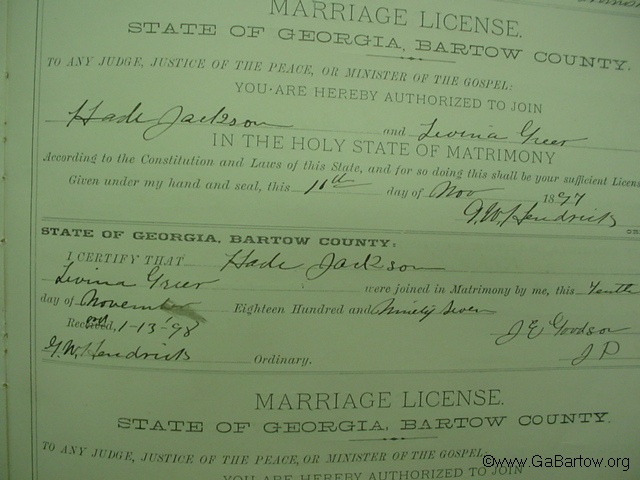 MARRIAGE LICENSE.
STATE OF GEORGIA, BARTOW COUNTY.
TO ANY JUDGE, JUSTICE OF THE PEACE, OR MINISTER OF THE GOSPEL:
YOU ARE HEREBY AUTHORIZED TO JOIN
Hade Jackson and Levina Greer
IN THE HOLY STATE OF MATRIMONY
According to the Constitution and Laws of this State, and for so doing this shall be your sufficient Licens
Given under my hand and seal, this 11th day of Nov 1897
G.W. Hendricks
STATE OF GEORGIA, BARTOW COUNTY:
I CERTIFY THAT Hade Jackson
Levina Greer were joined in Matrimony by me, this Tenth
day of November Eighteen Hundred and Ninety Seven
1-13-98 J E Goodson
G.W. Hendricks Ordinary. J P
MARRIAGE LICENSE.
STATE OF GEORGIA, BARTOW COUNTY.
TO ANY JUDGE, JUSTICE OF THE PEACE, OR MINISTER OF THE GOSPEL:
YOU ARE HEREBY AUTHORIZED TO JOIN
©www.GaBartow.org